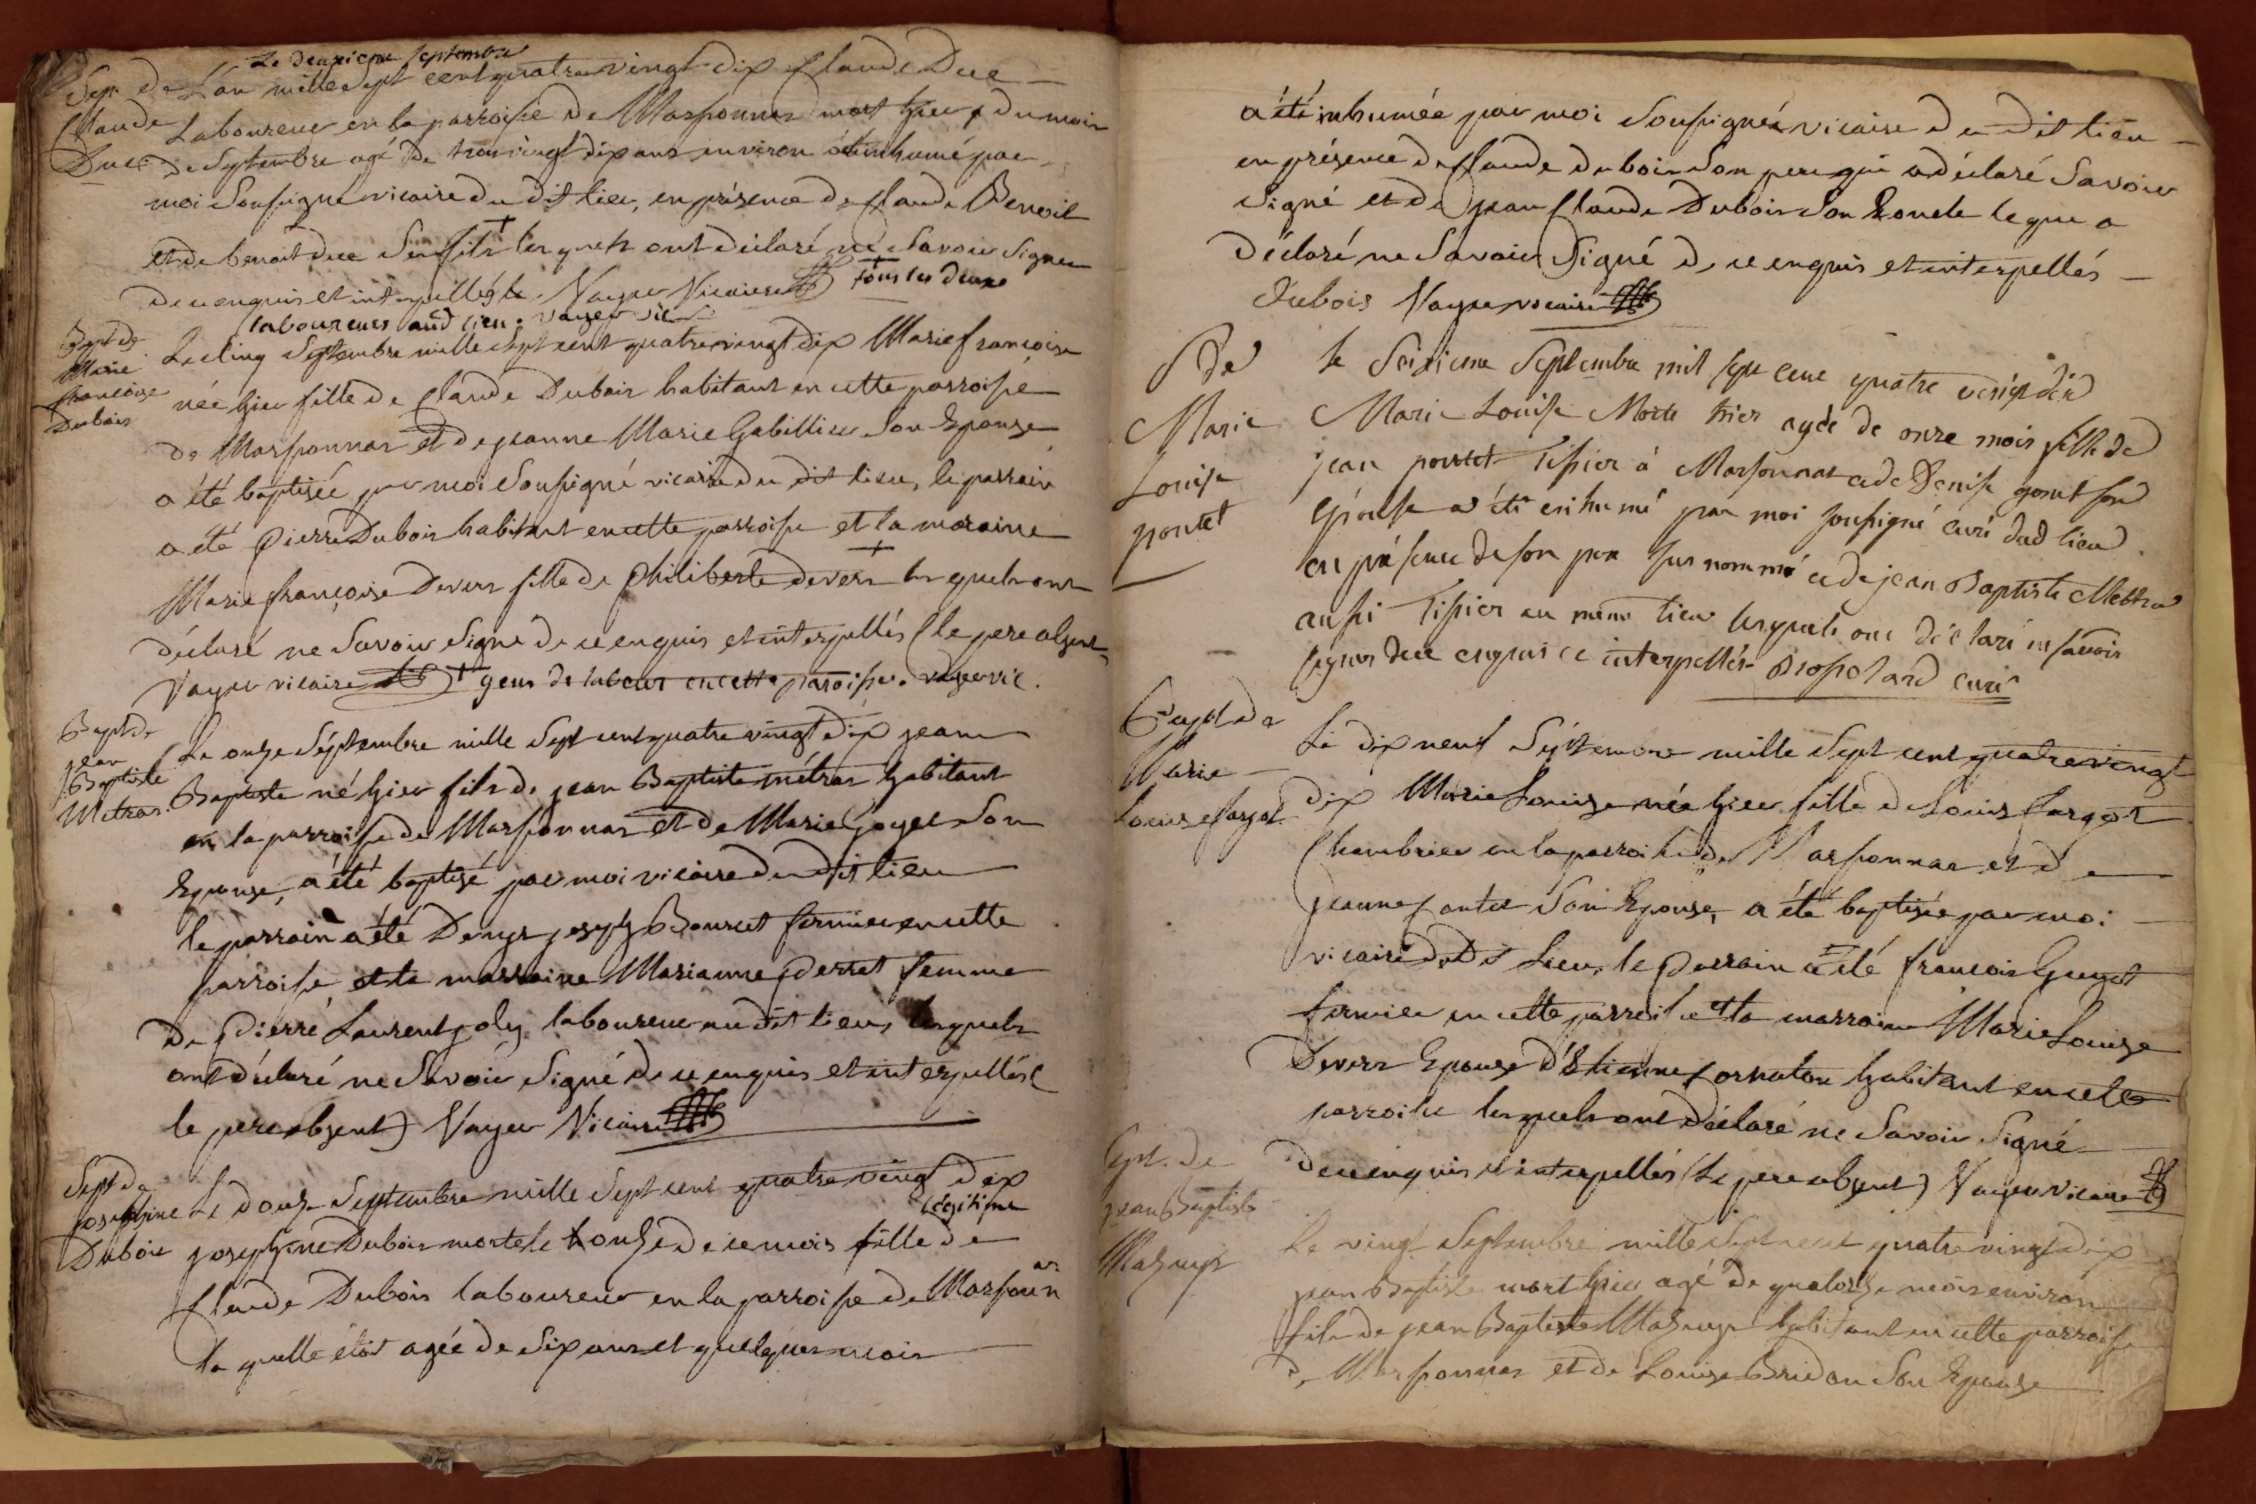 Le deuxieme septembre
Sep. de L'an mille Sept cent quatre vingt dix Claude Duc
Claude Laboureur en la parroisse de Marsonnas mort hier du mois
Duc de Septembre agé de trois vingt dix ans environ a été inhumé par
moi Soussigné vicaire du dit lieu, en présence de Claude Benoit
et de benoit duc Son fils + les quels ont déclaré ne Savoir Signer
de ce enquis et interpellés Vayer Vicaire + tous les deux
laboureurs aud lieu. Vayer vic
Bapt de Le cinq Septembre mille Sept cent quatre vingt dix Marie françoise
Marie née hier fille de Claude Dubois habitant en cette parroisse
françoise de Marsonnas et de jeanne Marie Gabillier Son Epouse
Dubois a été baptisée par moi Soussigné vicaire du dit lieu, le parrain
a été Pierre Dubois habitant en cette parroisse et la maraine
Marie françoise Devers fille de Philiberte devers + les quels ont
déclaré ne Savoir Signé de ce enquis et interpellés (le pere absent)
Vayer vicaire + gens de labeur en cette paroisse. Vayer vic.
Bapt de Le onze Séptembre mille Sept cent quatre vingt dix jean
jean Baptiste né hier fils de jean Baptiste métras habitant
Baptiste en la parroisse de Marsonnas et de Marie Goyet Son
Métras. Epouse, a été baptisé par moi vicaire du dit lieu
le parrain a été Denys joseph Bourcet fermier en cette
parroisse et la marraine Marianne Perret femme
de Pierre Laurent joly laboureur au dit lieu, lesquels
ont déclaré ne Savoir Signé de ce enquis et interpellés (
le pere absent) Vayer Vicaire
Sept de Le douze Septembre mille Sept cent quatre vingt dix
josephine josephine Dubois morte le onze de ce mois fille légitime de
Dubois Claude Dubois laboureur en la parroisse de Marsonnas
la quelle étoit agée de Six ans et quelques mois
a été inhumée par moi Soussigné vicaire du dit lieu
en présence de Claude dubois Son pere qui a déclaré Savoir
Signé et de jean Claude Dubois Son Eoncle leque a
déclaré ne Savoir Signé de ce enquis et interpellés
dubois Vayer vicaire
S de le Seixieme Septembre mil sept cent quatre vingt dix
Marie Marie Louise Morte hier agée de onze mois fille de
Louise jean pontet Tissier à Marsonnas et de Denise gonet son
pontet épouse a été enhumé par moi soussigné curé dud lieu
en présence de son pere sus nommé et de jean Baptiste Mettra
aussi Tissier au meme lieu lesquels ont déclaré ne savoir
signer de ce enquis et interpellés Brossolard curé
Bapt de Le dix neuf Séptembre mille Sept cent quatre vingt
Marie dix Marie Louise née hier fille de Louis fargot
Louise fargot Chambrier en la parroisse de Marsonnas et de
jeanne fontet Son Epouse, a été baptisée par moi
vicaire du dit lieu, le Parrain a été francois Guyot
fermier en cette parroisse et la marraine Marie Louise
Devers Epouse d'Etienne Cornaton habitant en cette
parroisse lesquels ont déclaré ne Savoir Signé
de ce enquis et interpellés (le pere absent) Vayer vicaire
Sept. de Le vingt Septembre mille Sept cent quatre vingt dix
jean Baptiste jean Baptiste mort hier agé de quatorze mois environ
Mazuyr fils de jean Baptiste Mazuyr habitant en cette parroisse
de Marsonnas et de Louise Bridon Son Epouse